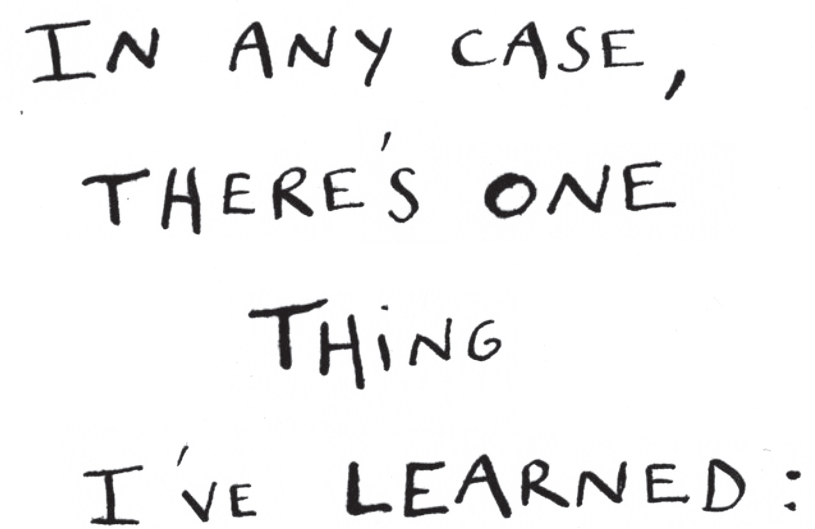 IN ANY CASE,
THERE'S ONE
THiNG
I'VE LEARNED: